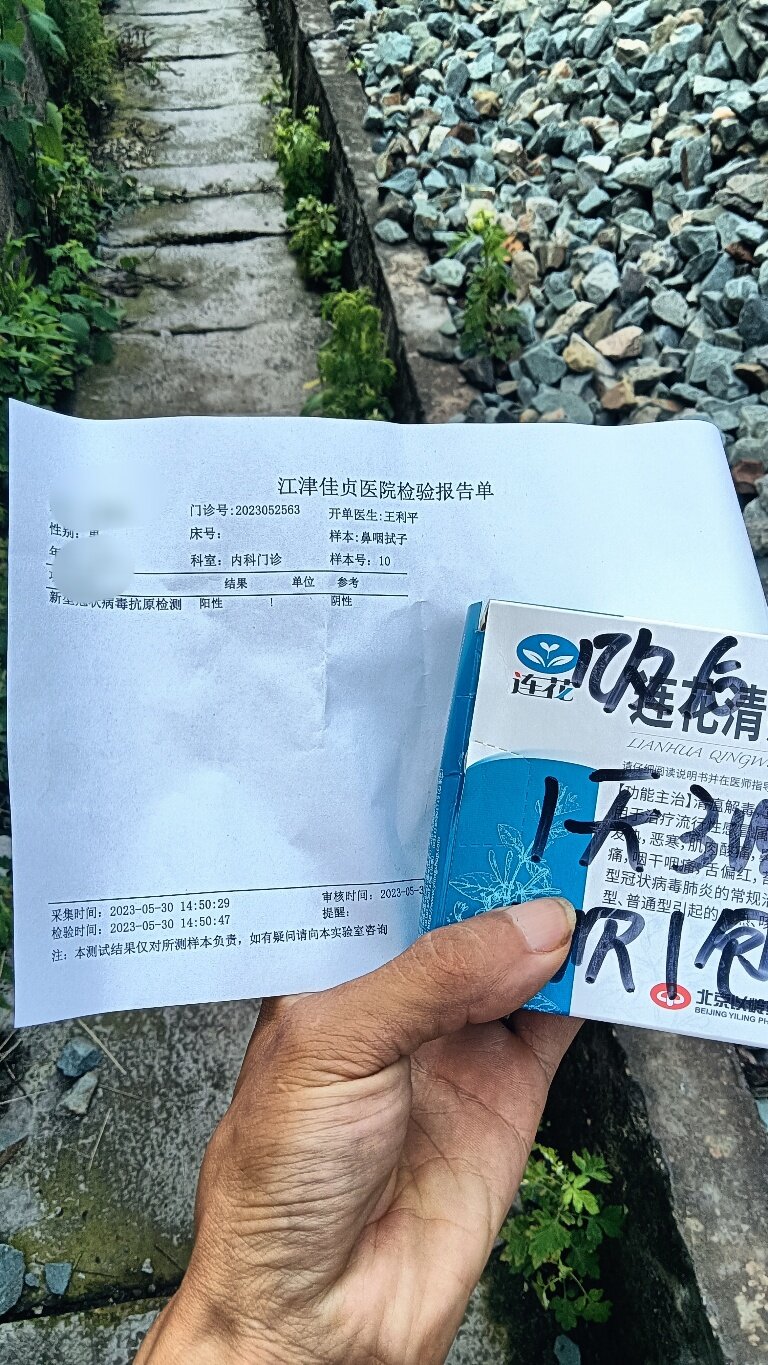 江津佳贞医院检验报告单
门诊号:2023052563 开单医生:王利平
性别: 床号: 样本:鼻咽拭子
科室: 内科门诊 样本号: 10
结果 单位 参考
新型冠状病毒抗原检测 阳性 ! 阴性
采集时间: 2023-05-30 14:50:29 审核时间: 2023-05-3
检验时间: 2023-05-30 14:50:47 提醒:
注: 本测试结果仅对所测样本负责,如有疑问请向本实验室咨询
连花
连花清
LIANHUA QINGW
请仔细阅读说明书并在医师指导
【功能主治】清瘟解毒,
用于治疗流行性感冒属
发热,恶寒,肌肉酸痛,
痛,咽干咽痛,舌偏红,
型冠状病毒肺炎的常规
型、普通型引起的
饭后
1天3
1包
北京以岭
BEIJING YILING PH